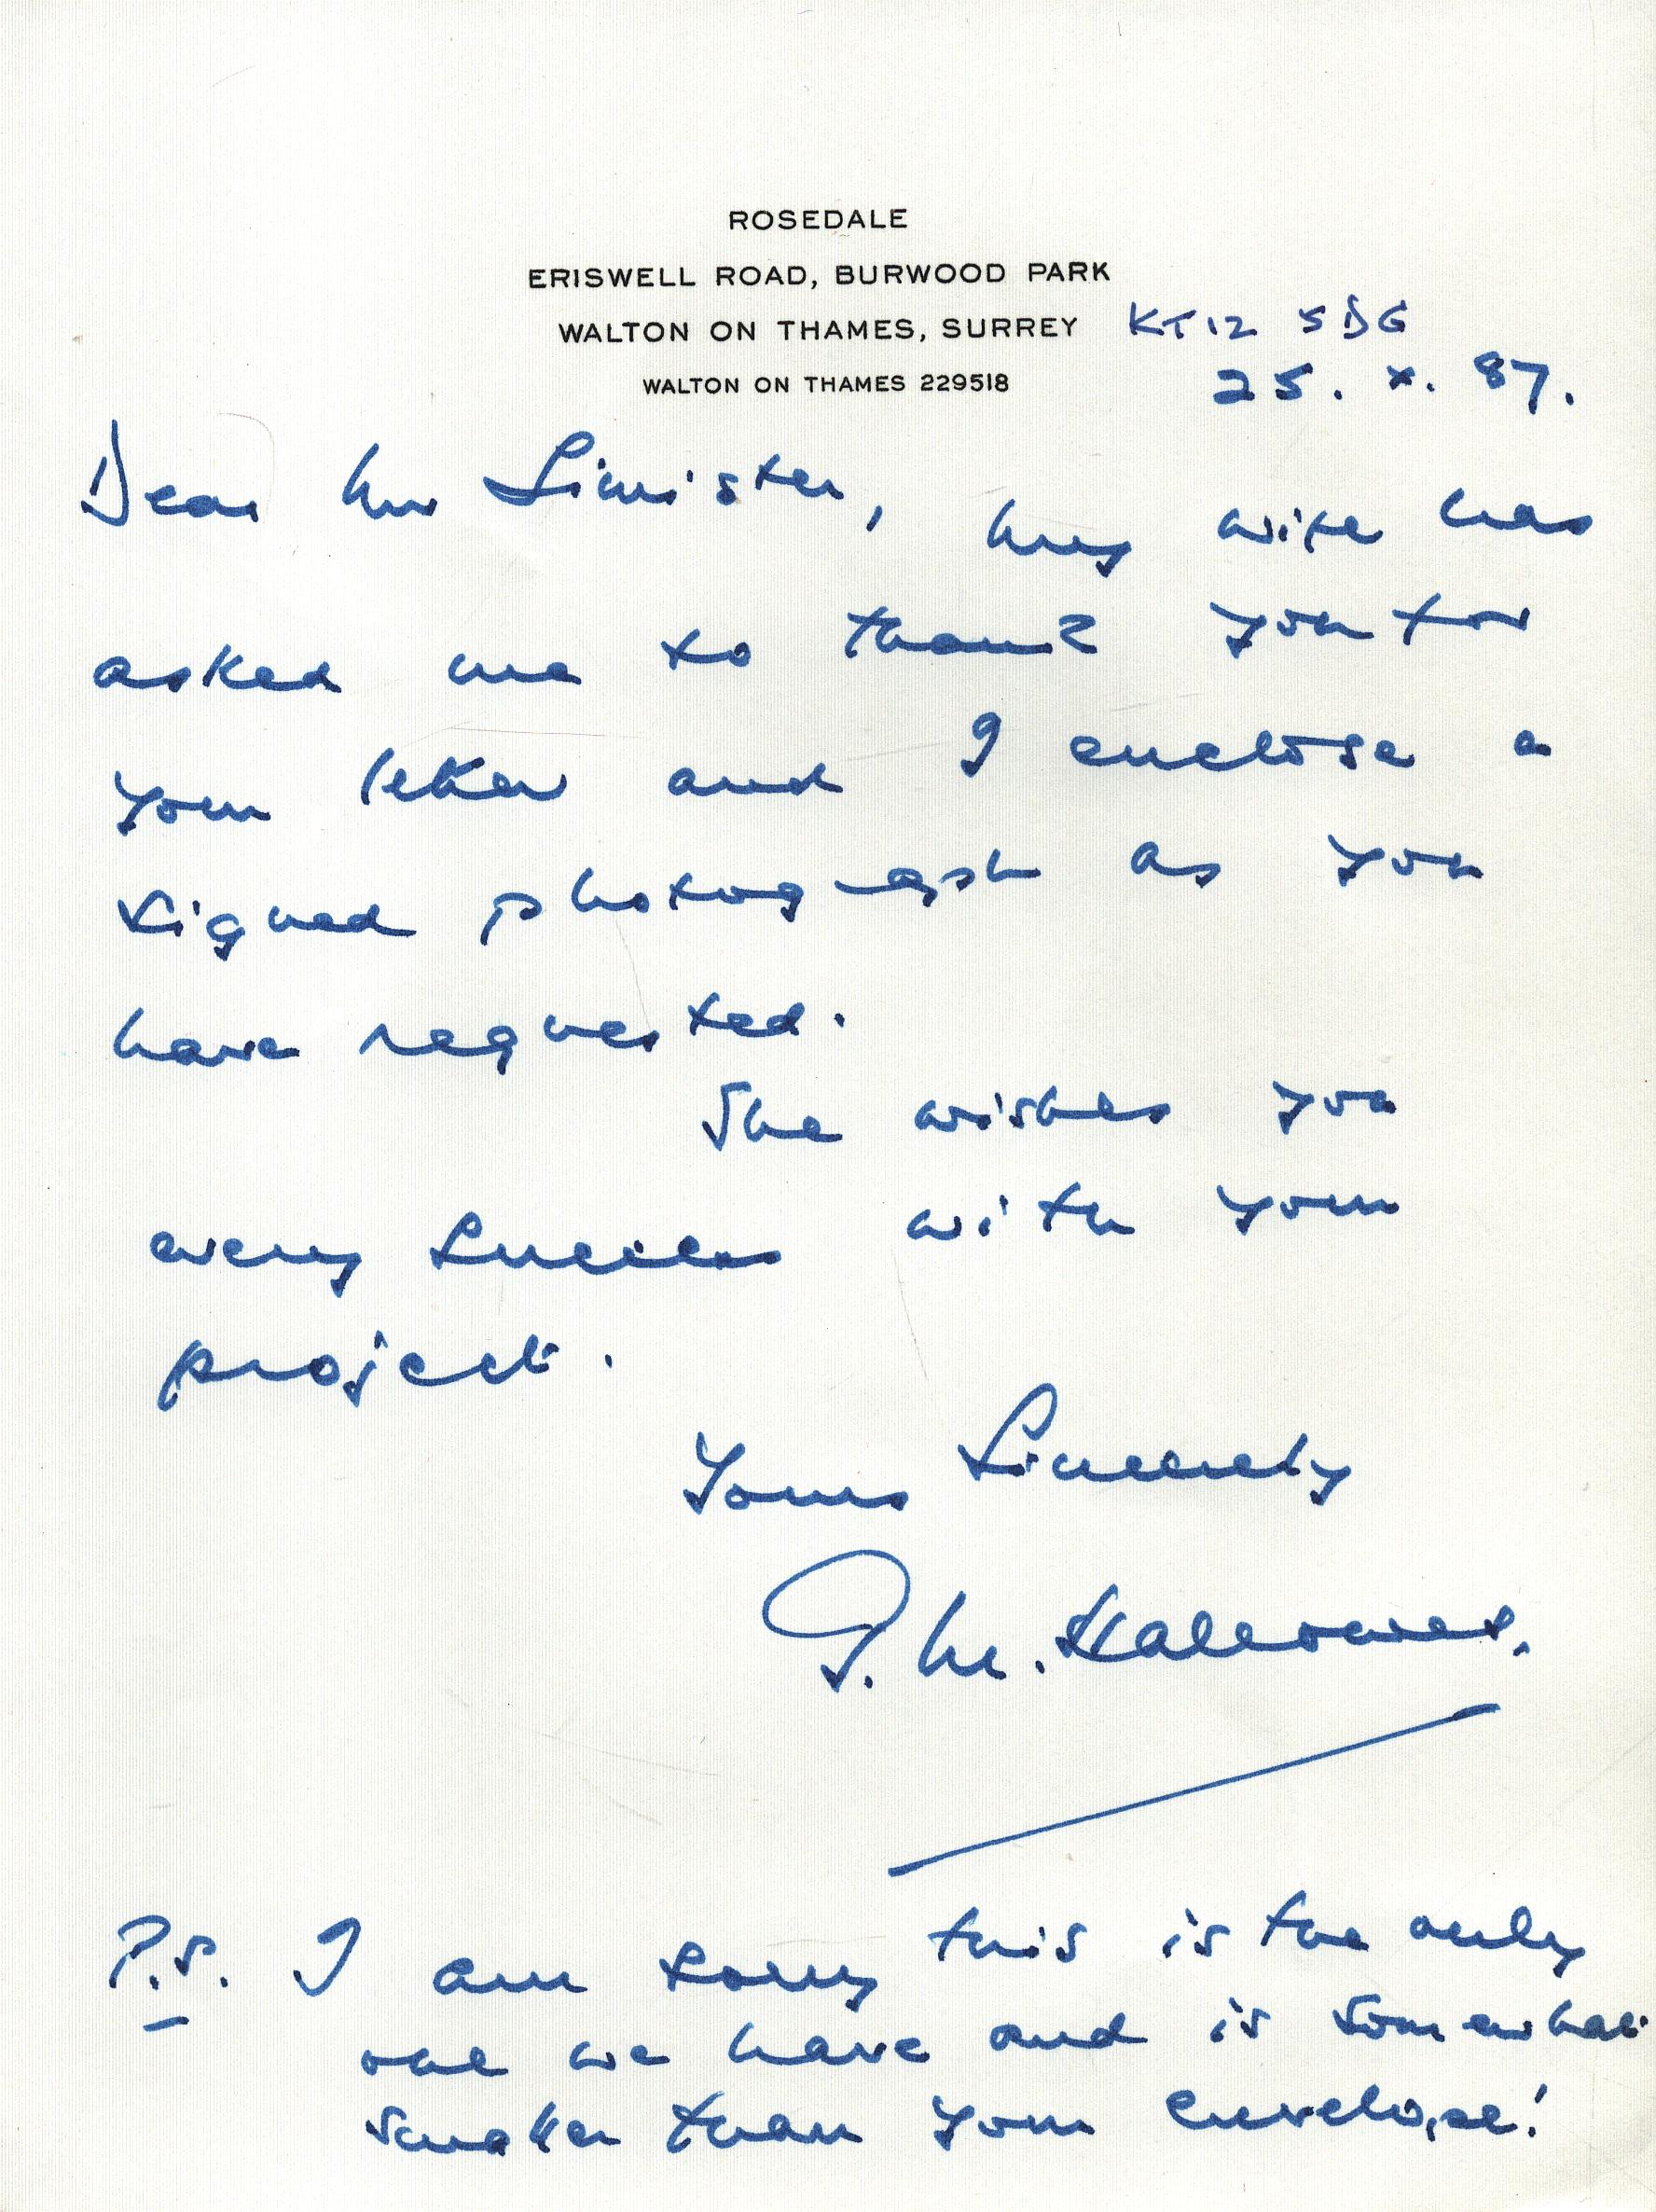 ROSEDALE
ERISWELL ROAD, BURWOOD PARK
WALTON ON THAMES, SURREY KT12 5DG
WALTON ON THAMES 229518
25. x. 87.
Dear Mr Simister, My wife has
asked me to thank you for
your letter and I enclose a
signed photograph as you
have requested.
She wishes you
every success with your
project.
Yours Sincerely
G. M.
P.S. I am sorry this is the only
one we have and is somewhat
smaller than your envelope!